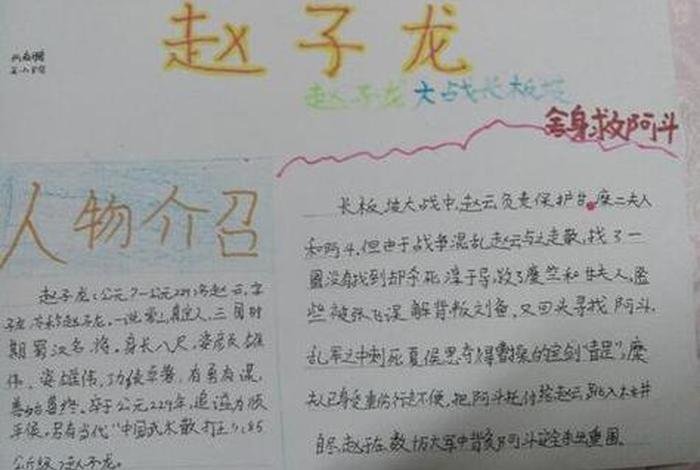 赵子龙
赵子龙大战长板坡
舍身救阿斗
人物介召
赵子龙(公元?—公元229)名赵云,字
子龙,常山真定人,三国时
期蜀汉名将。身长八尺,姿颜雄
伟、姿雄伟,功绩卓著,有勇有谋,
善始善终。卒于公元229年,追谥为顺
平侯,另有当代“中国武术散打王”,85
公斤级赵子龙。
长板坡大战中,赵云负责保护甘糜二夫人
和阿斗,但由于战争混乱赵云与之走散,找了一
圈没有找到却杀死淳于导,救了糜竺和甘夫人,
些被张飞误解背叛刘备,又回头寻找阿斗,
乱军之中刺死夏侯恩夺得曹操的宝剑“青
夫人已身受重伤行走不便,把阿斗托付给赵云,跳入井
自尽,赵子在数万大军中背负阿斗重围。